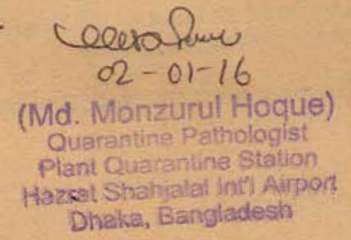 02-01-16
(Md. Monzurul Hoque)
Quarantine Pathologist
Plant Quarantine Station
Hazrat Shahjalal Int'l Airport
Dhaka, Bangladesh